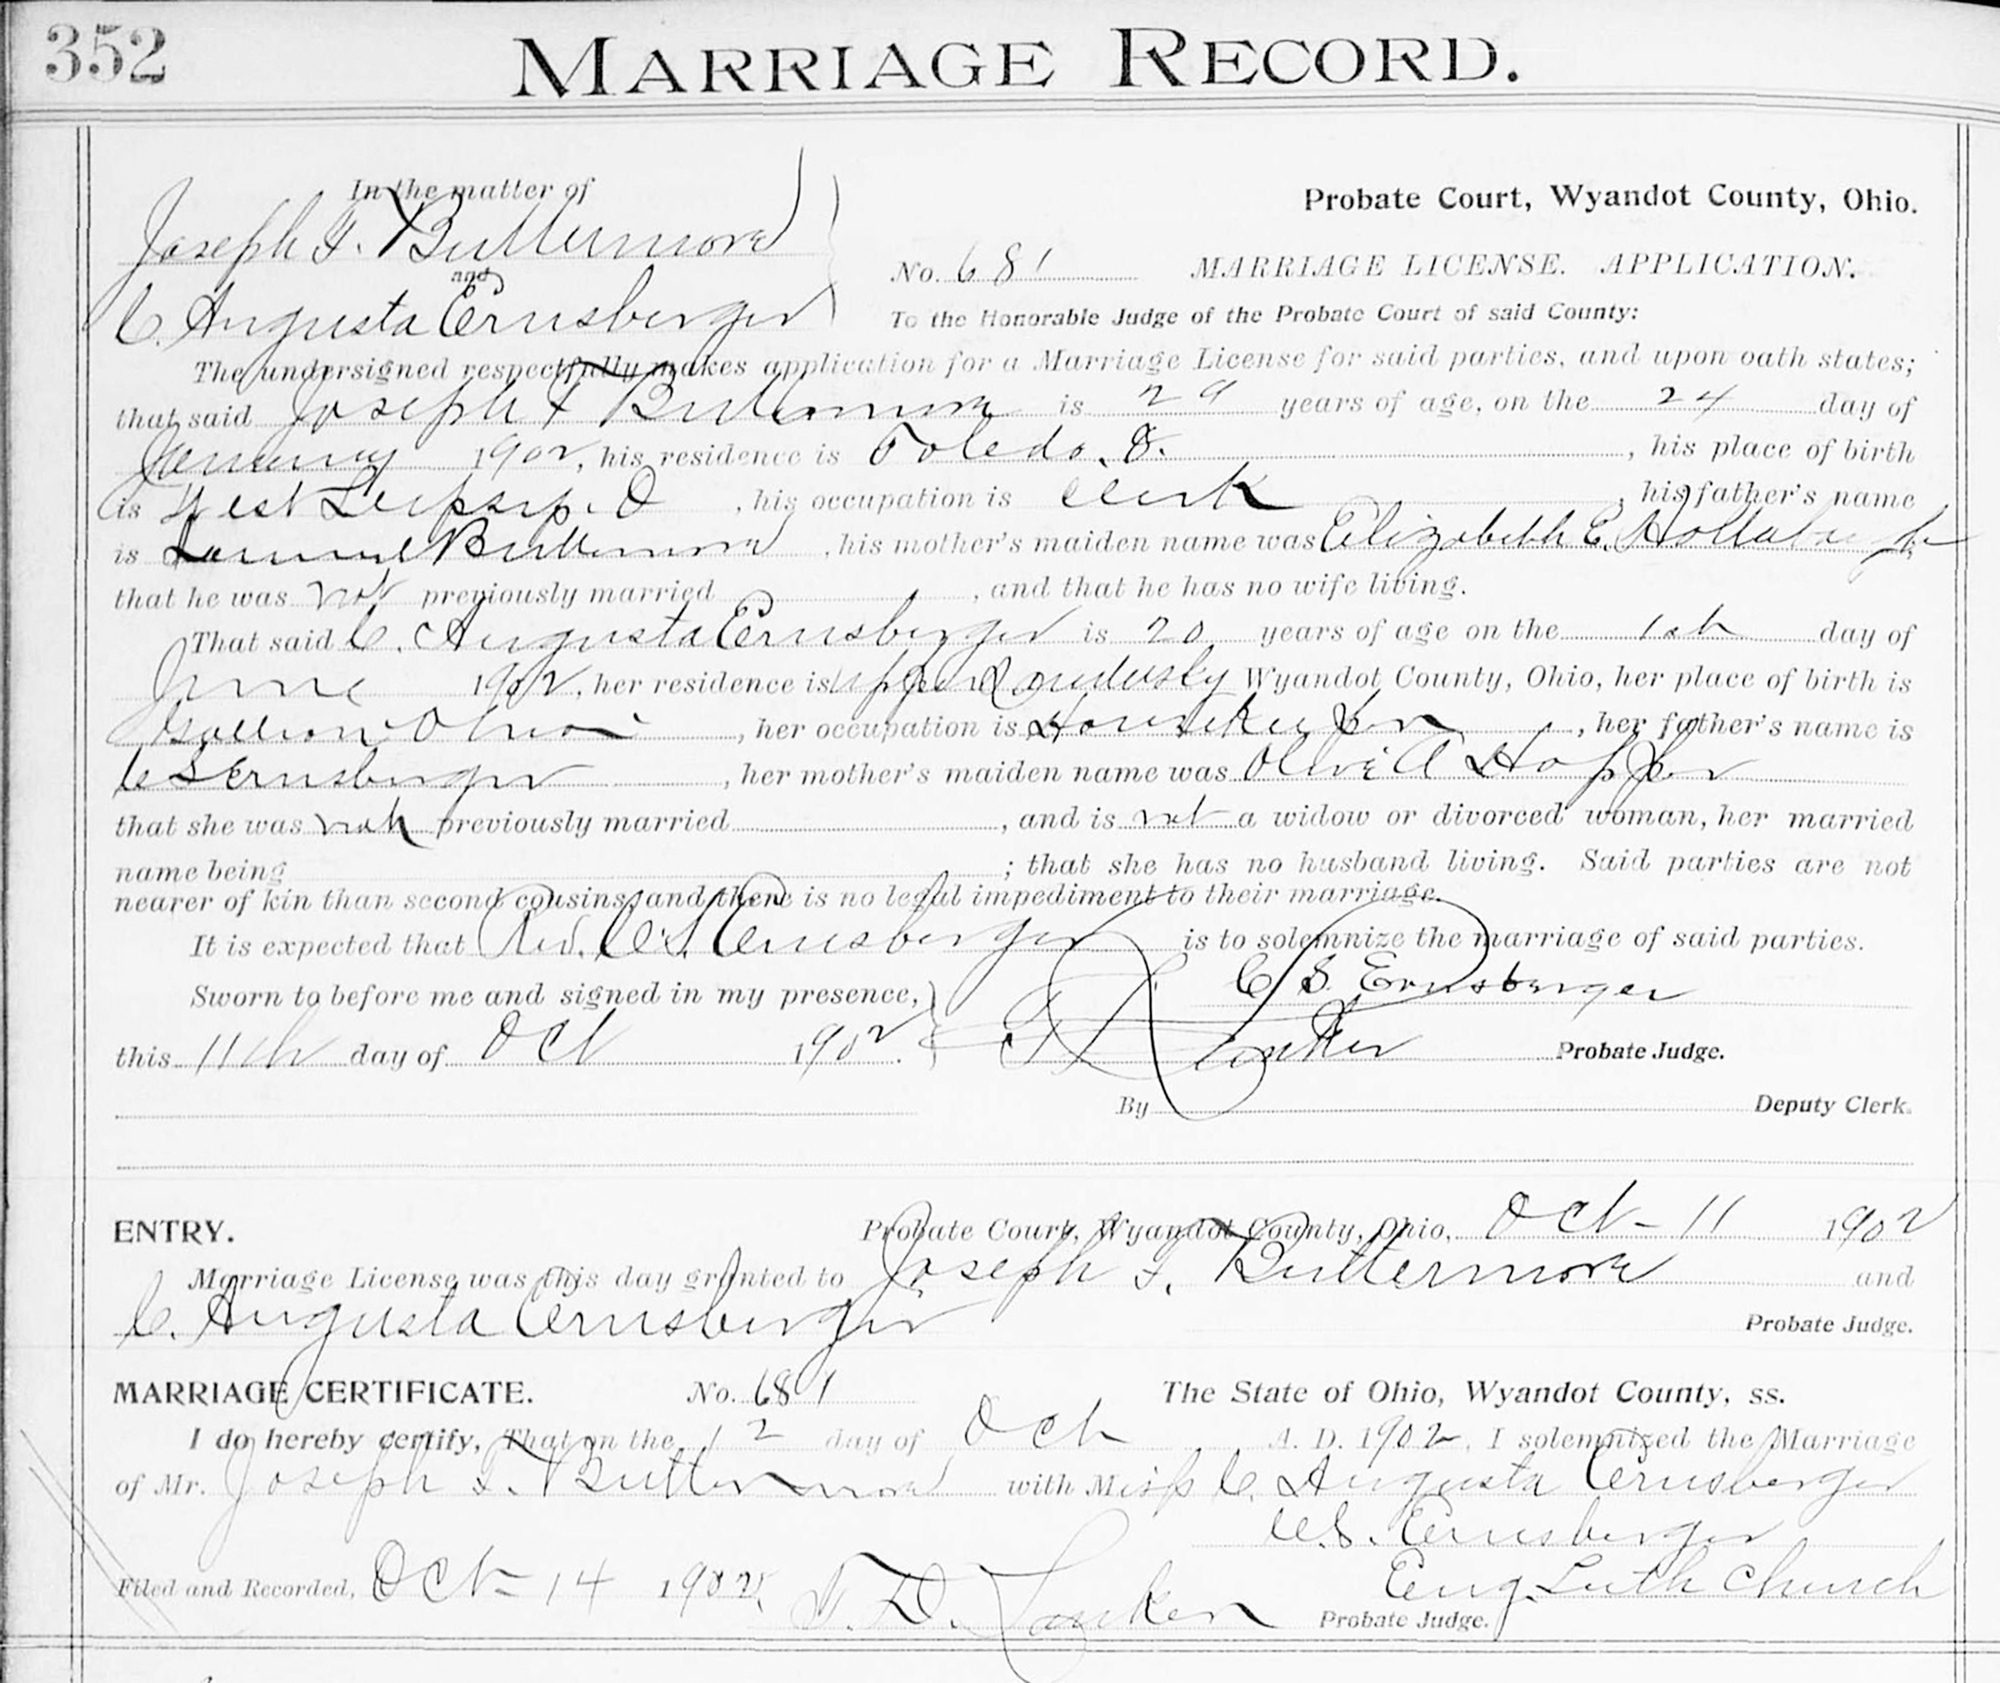 352
MARRIAGE RECORD.
In the matter of
Joseph F. Buttermore
and
C. Augusta Ernsberger
Probate Court, Wyandot County, Ohio.
No. 681 MARRIAGE LICENSE. APPLICATION.
To the Honorable Judge of the Probate Court of said County:
The undersigned respectfully makes application for a Marriage License for said parties, and upon oath states;
that said Joseph F Buttermore is 29 years of age, on the 24 day of
January 1902, his residence is Toledo. O. , his place of birth
is West Leipsip. O , his occupation is clerk , his father's name
is Buttermore , his mother's maiden name was Elizabeth E.
that he was not previously married , and that he has no wife living.
That said C. Augusta Ernsberger is 20 years of age on the 1st day of
June 1902, her residence is Upper Sandusky Wyandot County, Ohio, her place of birth is
Gallion Ohio , her occupation is Housekeeper , her father's name is
C S Ernsberger , her mother's maiden name was Olive A Hopper
that she was not previously married , and is not a widow or divorced woman, her married
name being ; that she has no husband living. Said parties are not
nearer of kin than second cousins, and there is no legal impediment to their marriage.
It is expected that Rev. C. S. Ernsberger is to solemnize the marriage of said parties.
Sworn to before me and signed in my presence, C S. Ernsberger
this 11th day of Oct 1902. Probate Judge.
By Deputy Clerk.
ENTRY. Probate Court, Wyandot County, Ohio, Oct - 11 1902
Marriage License was this day granted to Joseph F. Buttermore and
C. Augusta Ernsberger Probate Judge.
MARRIAGE CERTIFICATE. No. 681 The State of Ohio, Wyandot County, ss.
I do hereby certify, That on the 12 day of Oct A. D. 1902, I solemnized the Marriage
of Mr. Joseph F. Buttermore with Miss C. Augusta Ernsberger
C. S. Ernsberger
Eng. Luth Church
Filed and Recorded, Oct - 14 1902. Probate Judge.